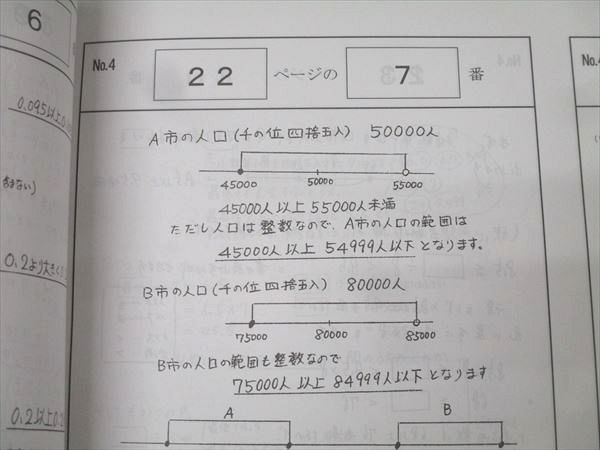 6
0.095以上0.
含まない)
0.2より大きく
0.2以上0.2
No.4
22 ページの 7 番
A市の人口(千の位四捨五入) 50000人
45000 50000 55000
45000人以上 55000人未満
ただし人口は整数なので、A市の人口の範囲は
45000人以上 54999人以下となります。
B市の人口(千の位四捨五入) 80000人
75000 80000 85000
B市の人口の範囲も整数なので
75000人以上 84999人以下となります
A B
No.4